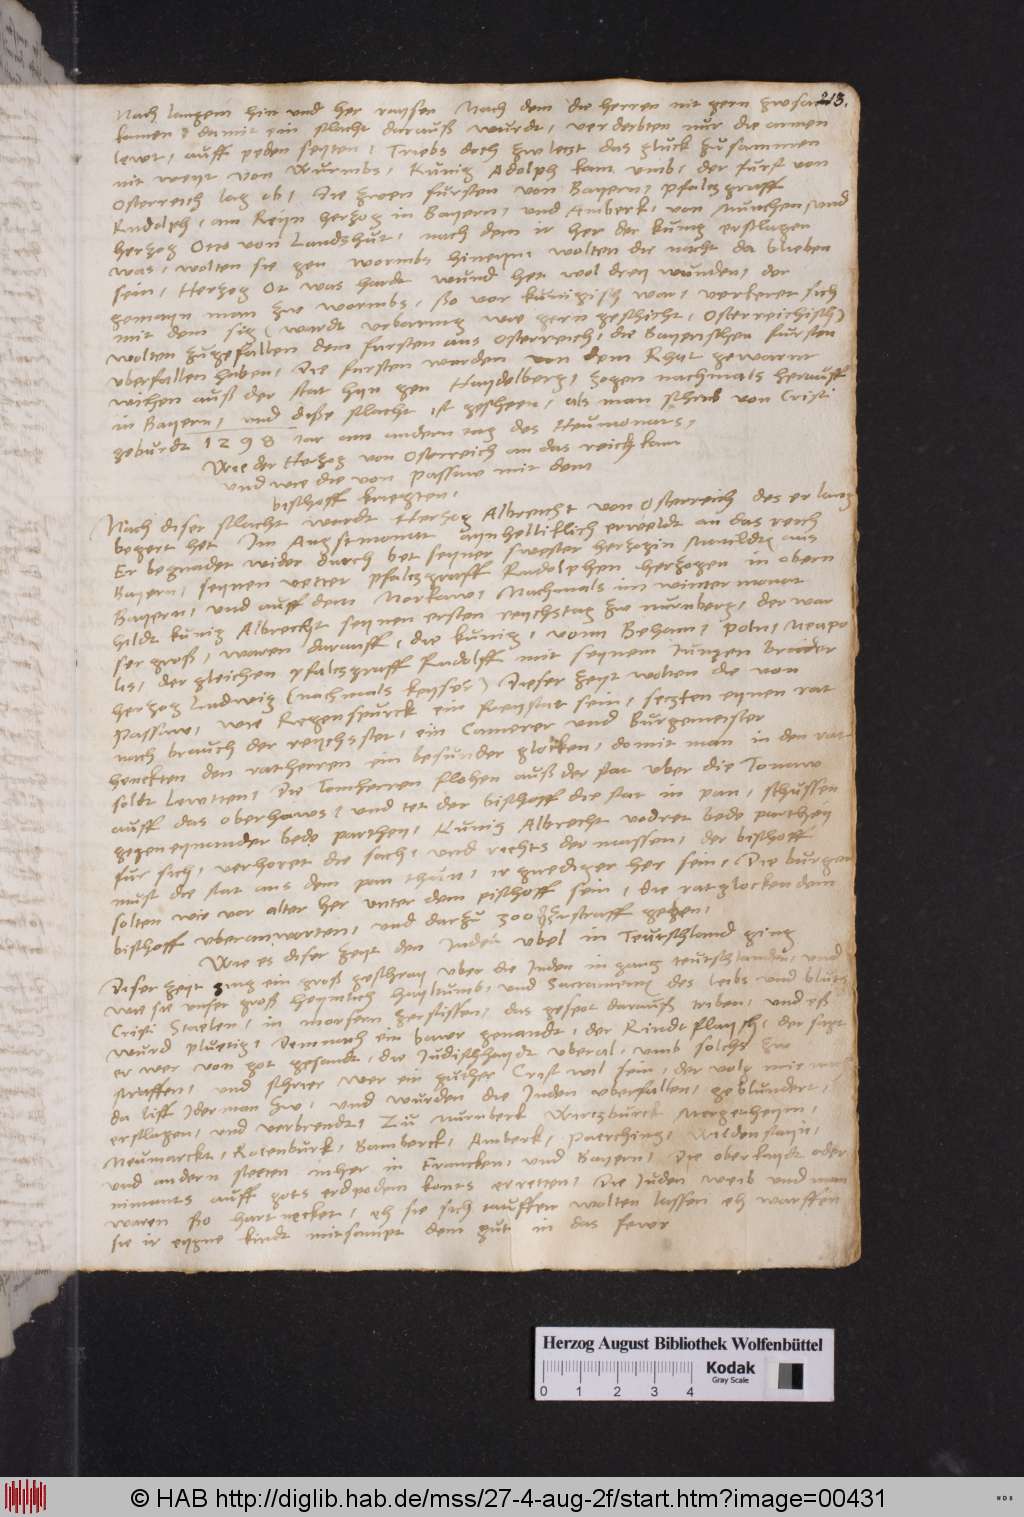 213.
Nach langem hin und her raysen Nach dem die herren nit gern zwsam
kamen / damit ein slacht darauß wurdt / verderbten nur die armen
lewt / auff peden seyten / Triebs doch zwletzt das gluck zusammen
nit weyt von Wurmbs / Kunig Adolph kam umb / der furst von
Osterreich lag ob / Die zwen fursten von Bayern / pfaltzgraff
Rudolph / am Reyn herzog in Bayern / und Amberk / von Munchen / und
herzog Otto von Landshut / nach dem ir her der kunig erslagen
was / wolten sie gen wormbs hineyn / wolten die nacht da blieben
sein / Herzog Ot was hardt wund het wol drey wunden / der
gemayn man zw wormbs / ßo vor kunigisch war / verkeret sich
mit dem sig ( wardt wie gern geschicht / Osterreichisch )
wolten zugefallen dem fursten aus Osterreich / die Bayerischen fursten
uberfallen haben / Die fursten warden von dem Rhat gewarnt
wichen auß der stat hyn gen Haydelberg / zogen nachmals herauff
in Bayern / und diße slacht ist gescheen / als man schrib von Cristi
geburdt 1298 Jar am andern tag des Heumonats /
Wie der Herzog von Osterreich an das reich kam
und wie die von Passaw mit dem
bischoff kriegten /
Nach diser slacht wardt Herzog Albrecht von Osterreich des er lang
begert het Im Augstmonat aynhelliklich erweldt an das reich
Er begnadet wider durch bet seyner swester herzogin Mathildis aus
Bayern / seynen vetter pfaltzgraff Rudolphen herzogen in obern
Bayern / und auff dem Norkaw / Nachmals im winter monat
hildt kunig Albrecht seynen ersten reychstag zw nurnberg / der war
ser groß / waren darauff / die kunig / vonn Beham / Poln / Neapo
lis / der gleichen pfaltzgraff Rudolff mit seynem Jungen bruder
herzog Ludwig ( nachmals keyser ) Dieser zeyt wolten die von
Passaw / wie Regenspurck ein freystat sein / setzten eynen rat
nach brauch der reychsstet / ein Camerer und burgemeister
henckten den ratherren ein besunder glocken / domit man in den rat
soldt lewtten / Die Tomherren flohen auß der stat uber die Tonaw
auff das oberhaws / und tet der bischoff die stat in pan / schussen
gegen eynander bede parthey / Kunig Albrecht vodret bede parthey
fur sich / verhoret die sach / und rechts dermassen / der bischoff
must die stat aus dem pan thun / ir gnediger her sein / Die burger
solten wie vor alter her unter dem pischoff sein / die ratglocken dem
bischoff uberanworten / und darzu 300 straff geben /
Wie es diser zeyt den Juden ubel in Teutschland ging
Diser zeyt ging ein groß geschray uber die Juden in gantz teutschlanden / und
wie sie unser groß heymlich hayltumb / und Sacrament des leibs und bluts
Cristi Staelen / in morsern zerstissen / das gespot darauß triben / und eß
wurd pluetig / Demnach ein bawr genandt / der Rindtflaysch / der sagt
er wer von got gesandt / die Judischhaydt uberal / umb solchs zw
straffen / und schrier wer ein guther Crist wil sein / der volg mir nach
da liff Jderman zw / und wurden die Juden uberfallen / geblundert /
erslagen / und verbrendt / Zu nurnberk Wirtzburck Mergetheym /
Neumarckt / Rotenburk / Bamberck / Amberk / Paerching / Wildenstayn /
und andern steeten mher in Francken / und Bayern / Die oberkaydt oder
nimants auff gots erdpodem konts erretten / Die Juden weib und man
waren ßo hartnecket / eh sie sich tauffen wolten lassen eh warffen
sie ir eygne kindt mitsampt dem gut in das fewr
Herzog August Bibliothek Wolfenbüttel
Kodak
Gray Scale
0 1 2 3 4
© HAB http://diglib.hab.de/mss/27-4-aug-2f/start.htm?image=00431